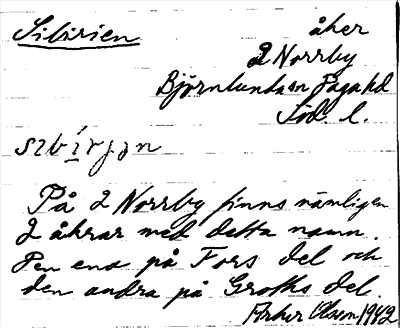 Sibirien
åker
2 Norrby
Björnlunda sn Daga hd
Söd. l.
sɪbírjən
På 2 Norrby finns nämligen
2 åkrar med detta namn.
Den ena på Fors del och
den andra på Groths del.
Olsson 1942